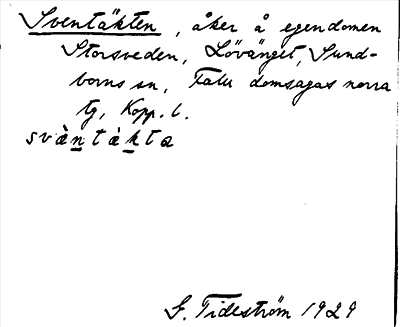 Sventäkten, åker å egendomen
Storsveden, Lövänget, Sund-
borns sn, Falu domsagas norra
tg, Kopp. l.
svàntákta
G. Tideström 1929